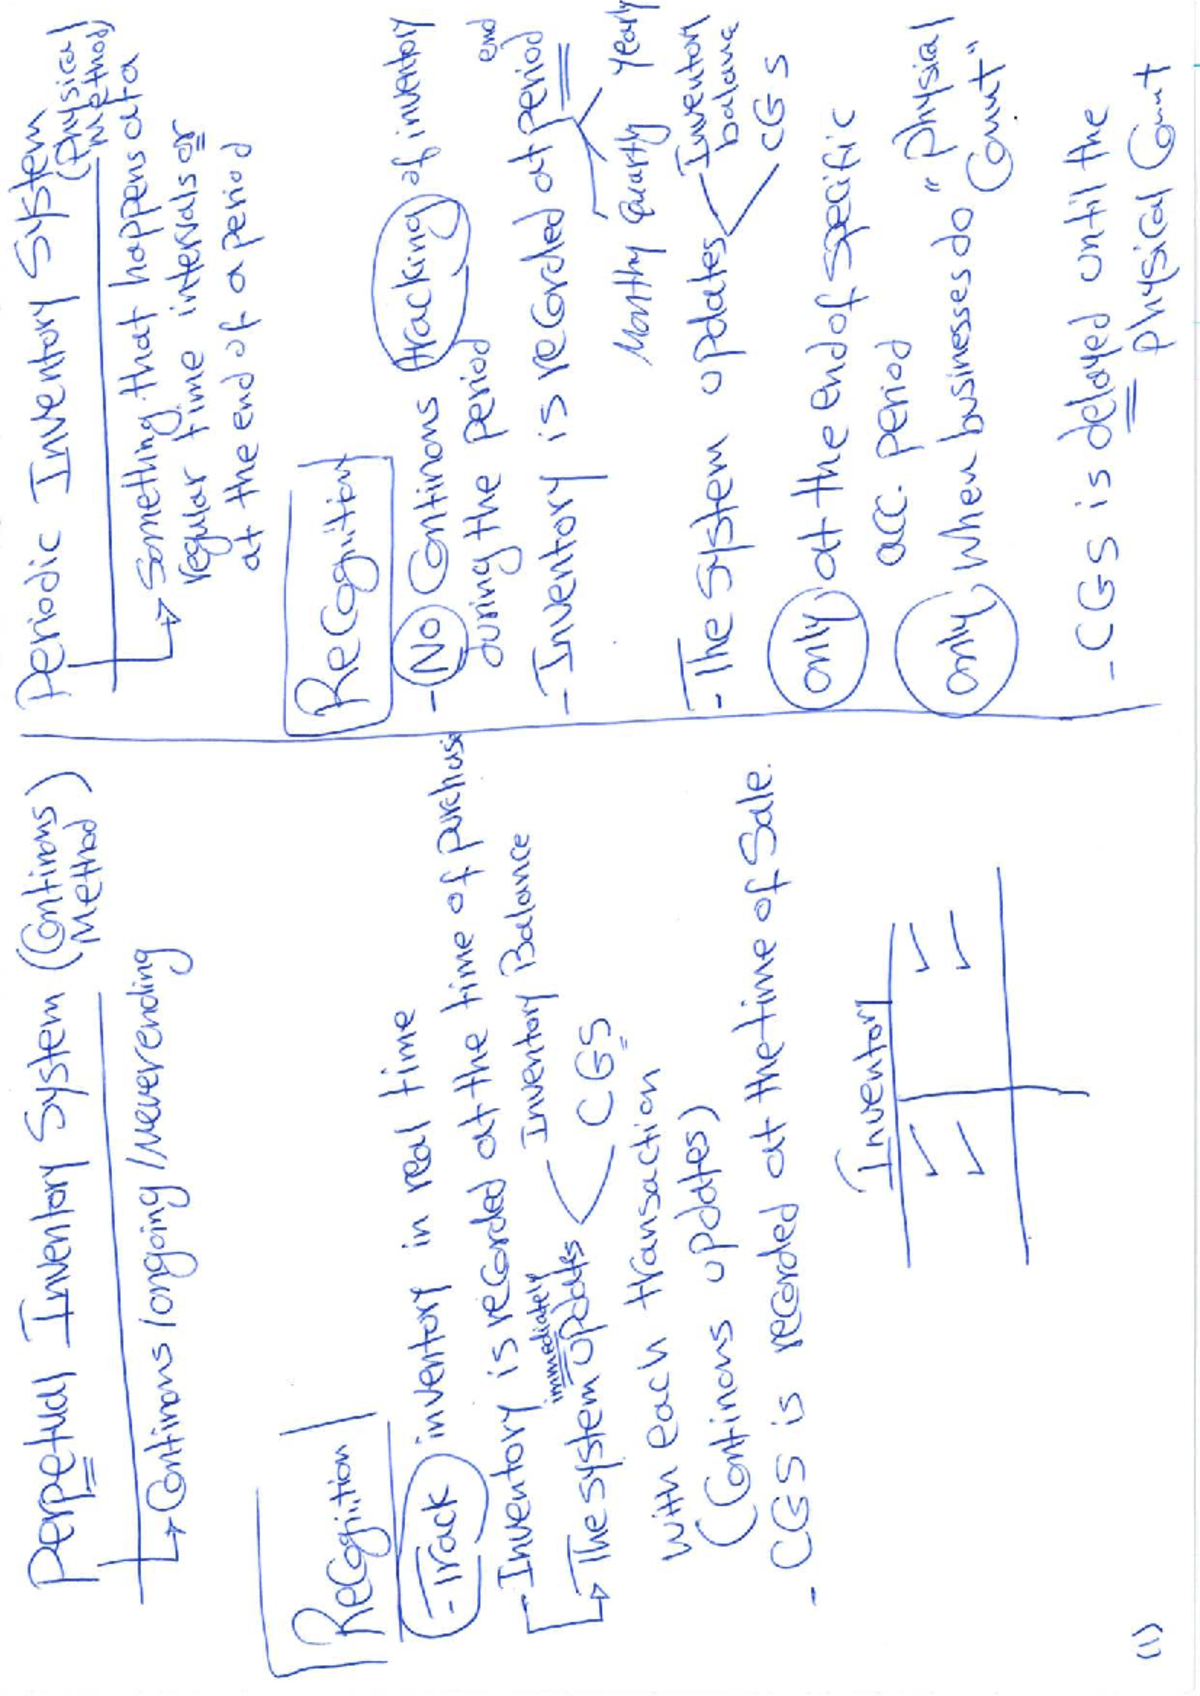 Perpetual Inventory System (Continous)
Method
Continous / ongoing / Neverending
Recognition
- Track inventory in real time
- Inventory is recorded at the time of purchase
immediately
The system updates Inventory Balance
CGS
with each transaction
(Continous updates)
- CGS is recorded at the time of Sale.
Inventory
(1)
Periodic Inventory System
(Physical
Method)
Something that happens at a
regular time intervals or
at the end of a period
Recognition
- No Continous tracking of inventory
during the period
end
- Inventory is recorded at period
Monthly Quartly Yearly
- The System updates Inventory
balance
CGS
only at the end of specific
acc. period
only when businesses do "Physical
Count"
- CGS is delayed until the
Physical Count